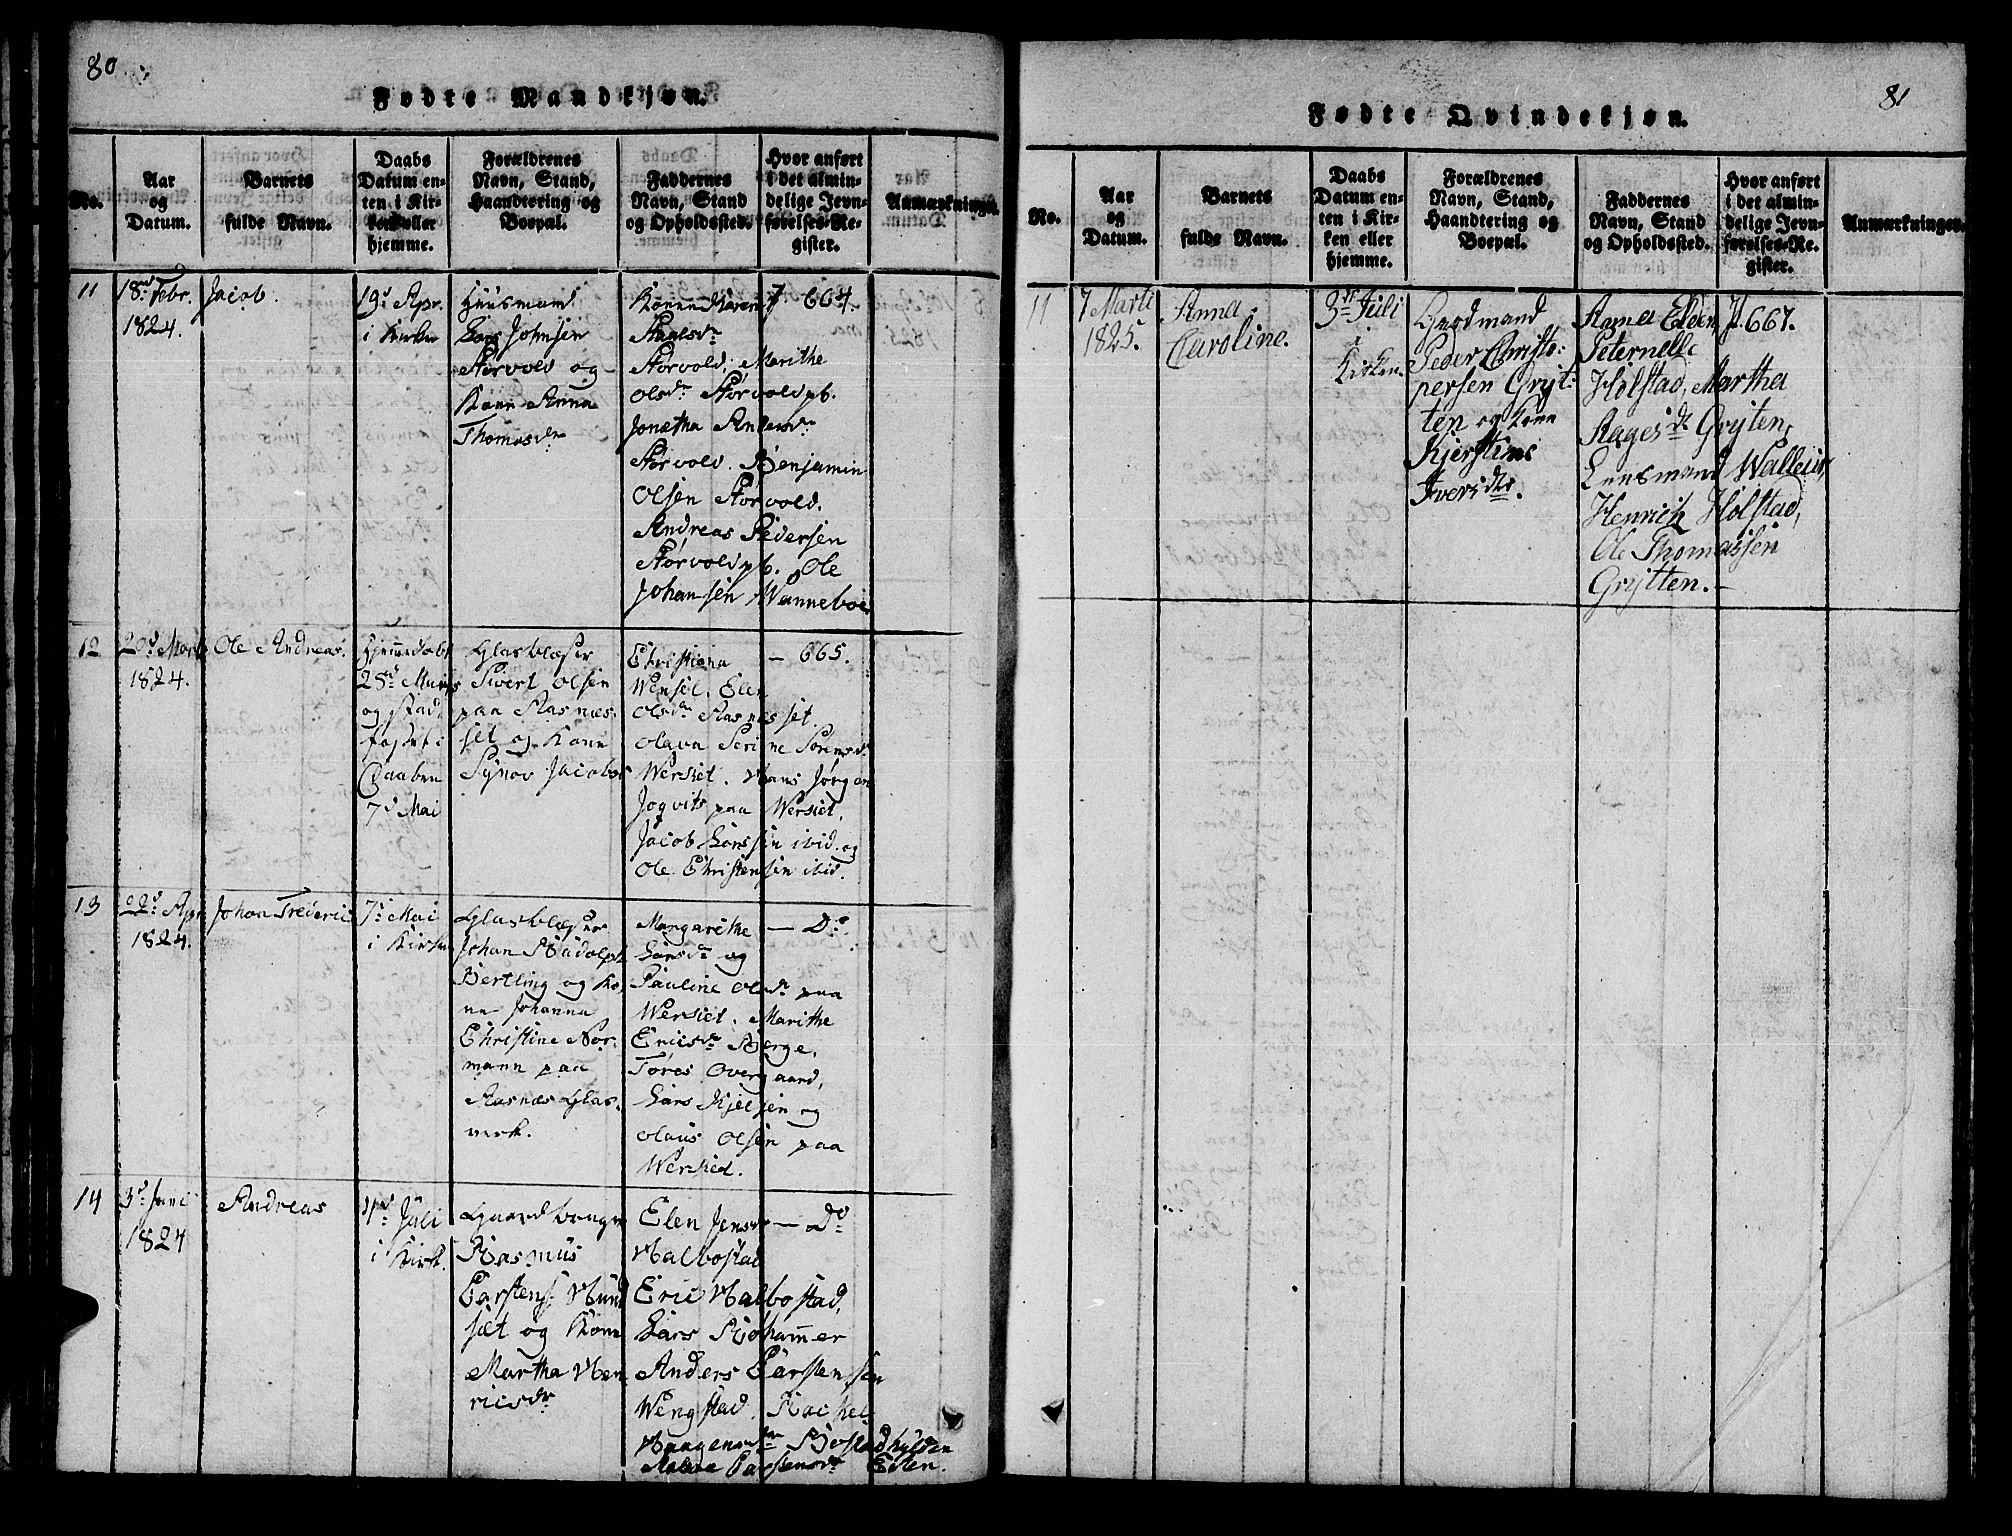 80
Fødte Mandkjøn.
No.
Aar
og
Datum.
Barnets
fulde Navn.
Daabs
Datum en-
ten i Kir-
ken eller
hjemme.
Forældrenes
Navn, Stand,
Haandtering og
Boepæl.
Faddernes
Navn, Stand
og Opholdssted.
Hvor anført
i det almin-
delige Jevn-
førelses-Re-
gister.
Anmærkninger.
11
18d Febr.
1824.
Jacob.
19d Apr.
i Kirken
Huusmand
Lars Johnsen
Størvold og
Kone Anna
Thomasdr
Konen Maren
Størvold, Marithe
Olsdr Størvold pb.
Jonetha Andersdr
Størvold. Benjamin
Olsen Størvold.
Andreas Pedersen
Størvold pb. Ole
Johansen Wanneboe
664.
12
20d Marts
1824.
Ole Andreas.
Hjemmedøbt
25d Marts
og stad-
fæstet i
Daaben
7d Mai
Glasblæser
Sivert Olsen
paa Aasnæs-
set og Kone
Synov Jacobsd
Christiana
Wensel. Elen
Olsdr Aasnesset.
Olava Serine Sørensd
Werket. Hans Jørgen
paa Werket.
Jacob Larssen ibid. og
Ole Christensen ibid.
— 665.
13
22d Apr
1824.
Johan Frederic
7d Mai
i Kirken
Glasblæser
Johan Rudolph
Bertling og Ko-
ne Johanna
Christine Nor-
mann paa
Aasnæs Glas-
verk.
Margarethe
Larsdr og
Pauline Olsdr paa
Werket. Marithe
Ericsdr Berge.
Tøres Overgaard,
Lars Kjelsen og
Olaus Olsen paa
Werket.
— Do
14
3d Juni
1824
Andreas
4d Juli
i Kirk.
Gaardbruger
Rasmus
Carstens: Hund
sæt og Kone
Martha Hen
ricsdr
Elen Jensdr
Halbostad
Eric Halbostad,
Lars Rohammer
Anders Carstensen
Wengstad. Rachel
Haagensdr
Malene Carstensdr Eiden.
— Do
81
Fødte Qvindekjøn.
No.
Aar
og
Datum.
Barnets
fulde Navn.
Daabs
Datum en-
ten i Kir-
ken eller
hjemme.
Forældrenes
Navn, Stand,
Haandtering og
Boepæl.
Faddernes
Navn, Stand
og Opholdssted.
Hvor anført
i det almin-
delige Jevn-
førelses-Re-
gister.
Anmærkninger.
11
7 Marti
1825.
Anna
Caroline.
3de Juli
i
Kirken.
Huusmand
Peder Christo-
persen Gryt-
ten og Kone
Kjerstine
Iversdtr.
Anna Elen
Peternelle
Holstad, Martha
Aagesdr Grytten,
Lensmand
Henrich Holstad,
Ole Thomassen
Grytten.—
P. 667.